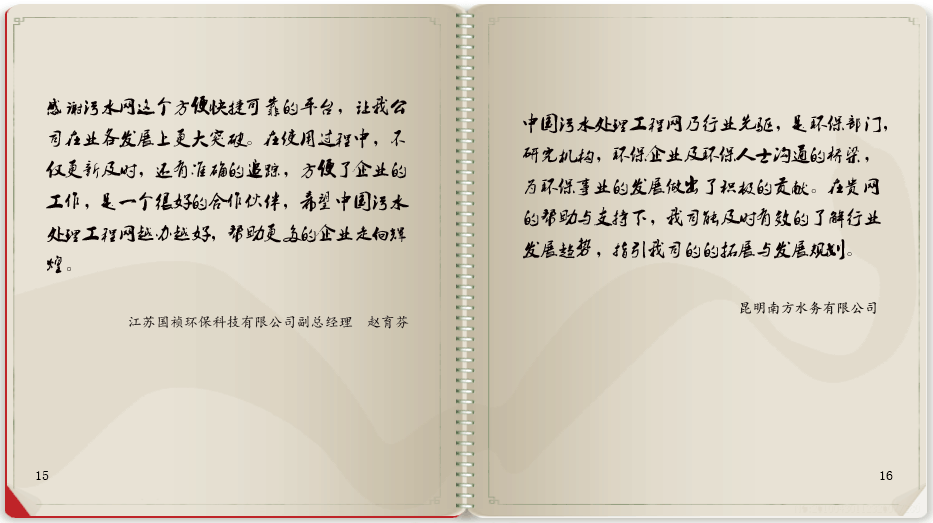 感谢污水网这个方便快捷可靠的平台，让我公
司在业务发展上更大突破。在使用过程中，不
仅更新及时，还有准确的追踪，方便了企业的
工作，是一个很好的合作伙伴，希望中国污水
处理工程网越办越好，帮助更多的企业走向辉
煌。
江苏国祯环保科技有限公司副总经理 赵育芬
15
中国污水处理工程网乃行业先驱，是环保部门，
研究机构，环保企业及环保人士沟通的桥梁，
为环保事业的发展做出了积极的贡献。在贵网
的帮助与支持下，我司能及时有效的了解行业
发展趋势，指引我司的的拓展与发展规划。
昆明南方水务有限公司
16